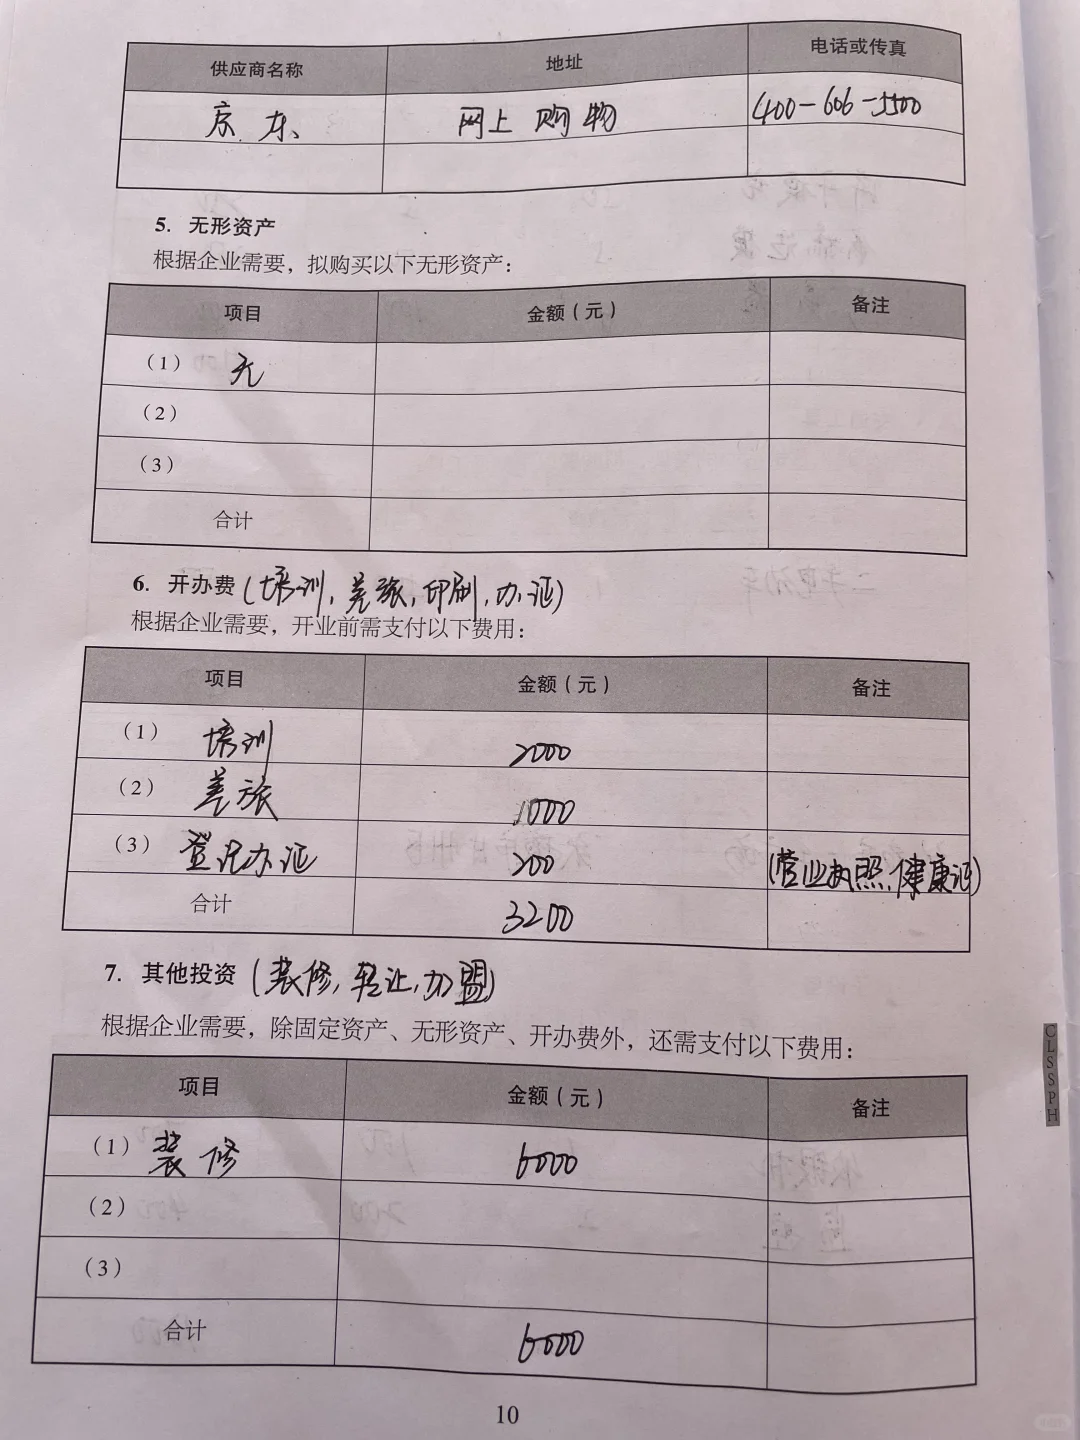 供应商名称 地址 电话或传真
京东 网上购物 400-606-5500
5. 无形资产
根据企业需要，拟购买以下无形资产：
项目 金额（元） 备注
（1） 无
（2）
（3）
合计
6. 开办费（培训，差旅，印刷，办证）
根据企业需要，开业前需支付以下费用：
项目 金额（元） 备注
（1） 培训 2000
（2） 差旅 1000
（3） 登记办证 200 （营业执照，健康证）
合计 3200
7. 其他投资（装修，转让，加盟）
根据企业需要，除固定资产、无形资产、开办费外，还需支付以下费用：
项目 金额（元） 备注
（1） 装修 6000
（2）
（3）
合计 6000
10
CLSSPH